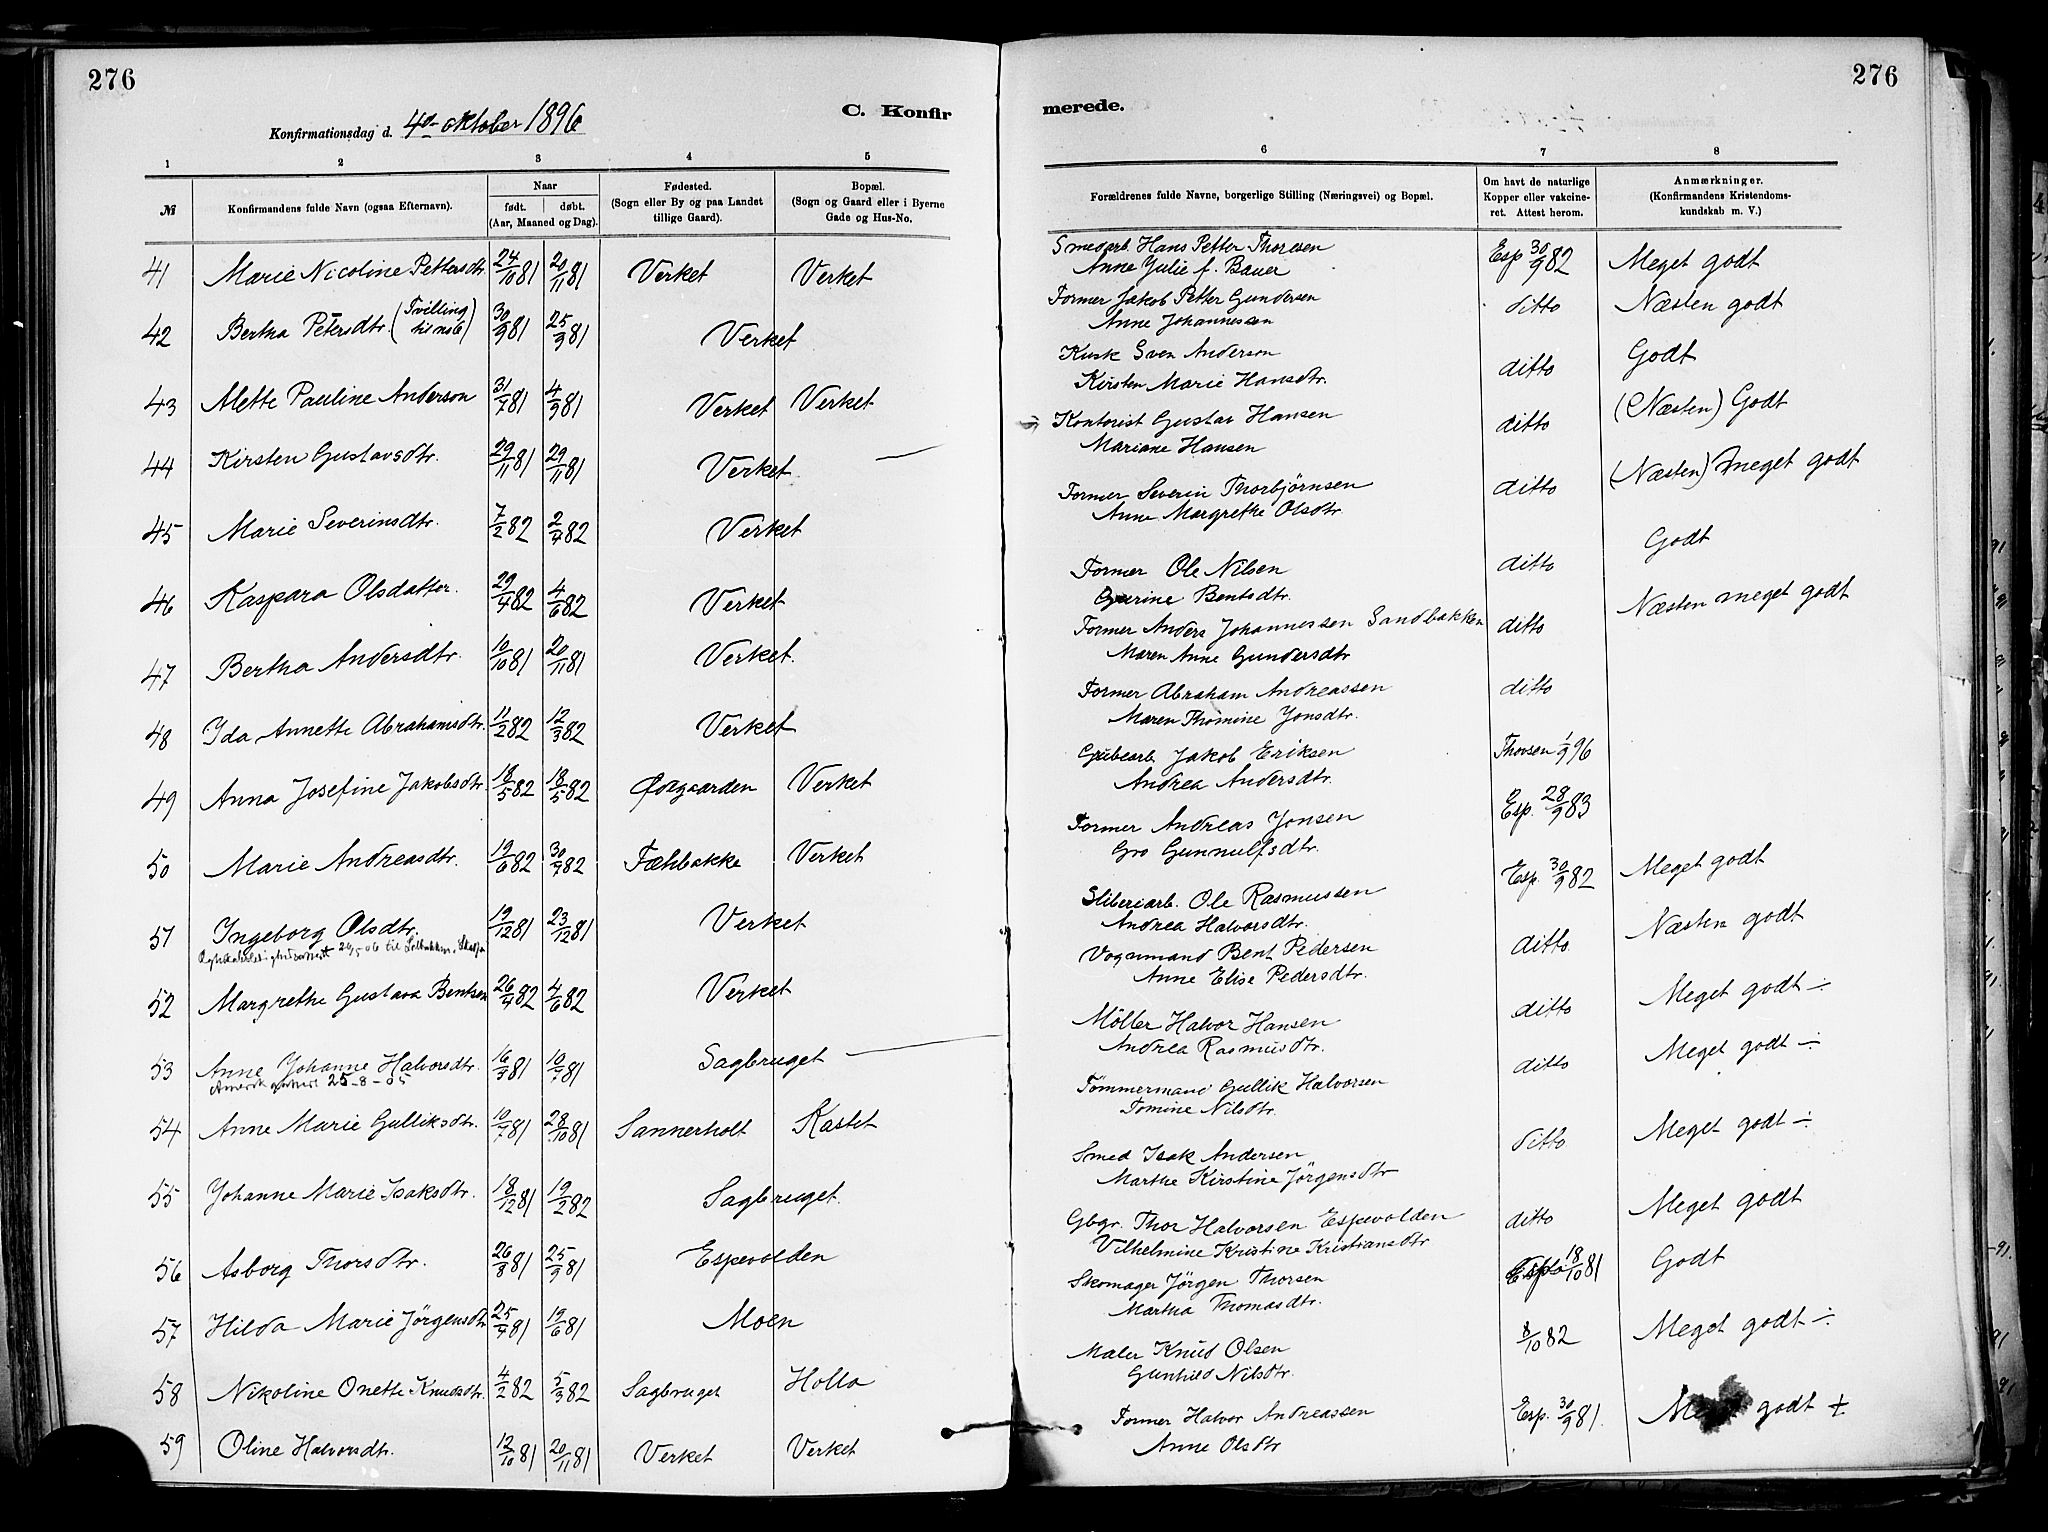 276
276
C. Konfir
merede.
Konfirmationsdag d. 4de oktober 1896
1 2 3 4 5 6 7 8
№ Konfirmandens fulde Navn (ogsaa Efternavn).
Naar født. døbt. (Aar, Maaned og Dag).
Fødested. (Sogn eller By og paa Landet tillige Gaard).
Bopæl. (Sogn og Gaard eller i Byerne Gade og Hus-No.
Forældrenes fulde Navne, borgerlige Stilling (Næringsvei) og Bopæl.
Om havt de naturlige Kopper eller vakcineret. Attest herom.
Anmærkninger. (Konfirmandens Kristendomskundskab m. V.)
41 Marie Nicoline Pettersdtr. 24/10 81 20/11 81 Verket Verket
Smedarb. Hans Petter Thoresen Esp 30/9 82 Meget godt
Anne Julie f. Bauer
42 Bertha Petersdtr. (Tvilling til no 6) 30/9 81 25/9 81 Verket
Former Jakob Petter Gundersen ditto Næsten godt
Anne Johannessen
43 Mette Pauline Anderson 31/7 81 4/9 81 Verket Verket
Kusk Sven Anderson ditto Godt
Kirsten Marie Hansdtr.
44 Kirsten Gustavsdtr. 29/11 81 29/11 81 Verket
Kontorist Gustav Hansen ditto (Næsten) Godt
Mariane Hansen
45 Marie Severinsdtr. 7/2 82 2/4 82 Verket
Former Severin Thorbjörnsen ditto (Næsten) meget godt
Anne Margrethe Olsdtr.
46 Kaspara Olsdatter. 29/4 82 4/6 82 Verket
Former Ole Nilsen ditto Godt
Gurine Bentsdtr.
47 Bertha Andersdtr. 10/10 81 20/11 81 Verket.
Former Anders Johannessen Sandbakken ditto Næsten meget godt
Maren Anne Gundersdtr
48 Ida Annette Abrahamsdtr. 11/2 82 12/3 82 Verket
Former Abraham Andreassen ditto
Maren Thomine Jonsdtr.
49 Anna Josefine Jakobsdtr. 18/5 82 18/5 82 Verket
Grubearb. Jakob Eriksen Thorsen 1/9 96
Andrea Andersdtr.
50 Marie Andreasdtr. 19/6 82 30/7 82 Fæhbakke Verket
Former Andreas Jonsen Esp. 28/9 83
Gro Gunnulfsdtr.
51 Ingeborg Olsdtr. 19/12 81 23/12 81 Verket
Sliberiarb. Ole Rasmussen Esp. 30/9 82 Meget godt
Andrea Halvorsdtr.
52 Margrethe Gustava Bentsen 26/4 82 4/6 82 Verket
Vognmand Bent Pedersen ditto. Næsten godt
Anne Elise Pedersdtr.
53 Anne Johanne Halvorsdtr. 16/3 81 10/7 81 Sagbruget
25-8-05
Möller Halvor Hansen ditto Meget godt ÷
Andrea Rasmusdtr.
54 Anne Marie Gulliksdtr. 10/7 81 28/10 81 Sannerholt Kastet
Tömmermand Gullik Halvorsen ditto Meget godt ÷
Tomine Nilsdtr.
55 Johanne Marie Isaksdtr. 18/12 81 19/2 82 Sagbruget.
Smed Isak Andersen ditto Meget godt ÷
Marthe Kirstine Jörgensdtr
56 Asborg Thorsdtr. 26/8 81 25/9 81 Espevolden
Gbgr. Thor Halvorsen Espevolden ditto Meget godt
Vilhelmine Kristine Kristiansdtr
57 Hilda Marie Jörgensdtr 25/4 81 19/6 81 Moen
Skomager Jörgen Thorsen 18/10 81 Godt
Martha Thomasdtr.
58 Nikoline Onette Knudsdtr. 4/2 82 5/3 82 Sagbruget Holla
Maler Knud Olsen 8/10 82 Meget godt ÷
Gunhild Nilsdtr.
59 Oline Halvorsdtr. 12/10 81 20/11 81 Verket Verket
Former Halvor Andreassen Esp. 30/9 81. Meget godt +
Anne Olsdtr